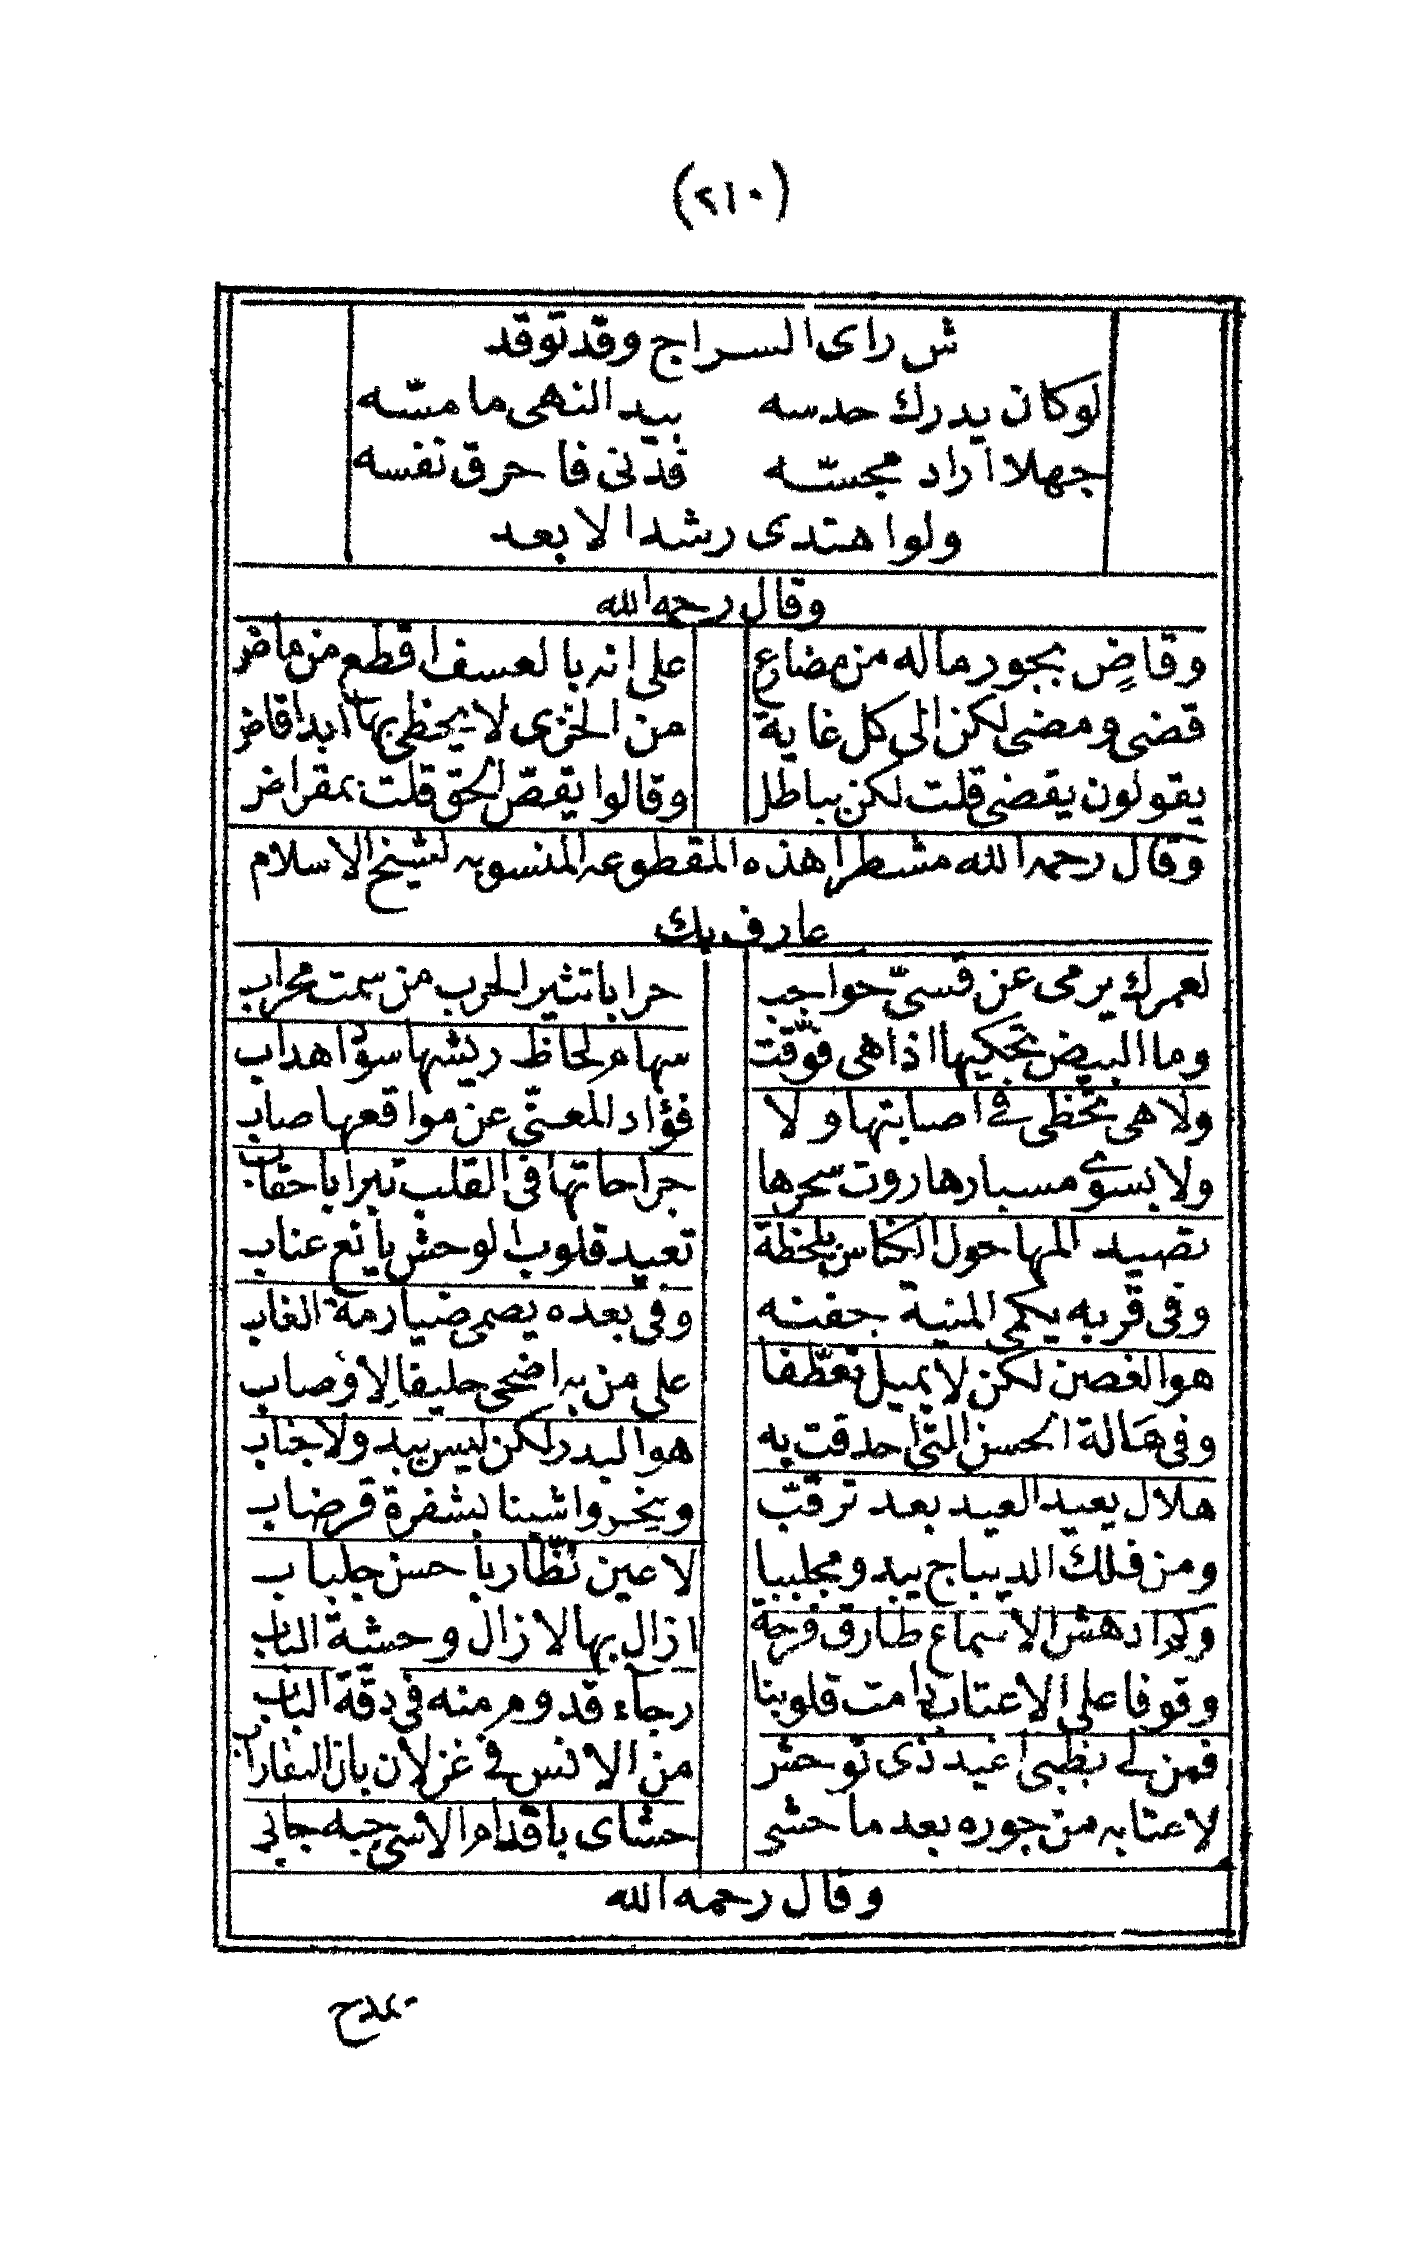 (٢١٠)
ش راى السراج وقد توقد
لوكان يدرك حدسه بيد النهى ما مسّه
جهلا اراد مجسّه فدنى فاحرق نفسه
ولو اهتدى رشدا لا بعد
وقال رحمه الله
وقاضٍ بجور ماله من مضارع على انه بالعسف اقطع من ماض
قضى ومضى لكن الى كل غاية من الخزى لا يحظى بها ابدا قاض
يقولون يقضى قلت لكن بباطل وقالوا يقصّ الحق قلت بمقراض
وقال رحمه الله مشطرا هذه المقطوعه المنسوبه لشيخ الاسلام
عارف بك
لعمرك يرمى عن قسىّ حواجب حرابا تثير الحرب من سمت محراب
وما البيض تحكيها اذا هى فوّقت سهام لحاظ ريشها سؤ اهداب
ولا هى تخطى فى اصابتها ولا فؤاد المعنّى عن مواقعها صاب
ولا بسوى مسبار هاروت سحرها جراحاتها فى القلب تبرا باحقاب
تصيد المها حول الكناس بلحظة تعيد قلوب الوحش يانع عناب
وفى قربه يحمى المنية جفنه وفى بعده يصمى ضيارمة الغاب
هو الغصن لكن لا يميل تعطّفا على من به اضحى حليفا لاوصاب
وفى هالة الحسن التى احدقت به هو البدر لكن ليس يبد ولا جناب
هلال يعيد العيد بعد ترقّب وينحر واشينا بشفرة قرضاب
ومن فلك الديباج يبد ومجلببا لاعين نظّار با حسن جلباب
وكم ادهش الاسماع طارق فرحة ازال بها لا زال وحشة الباب
وقوفا على الاعتاب دامت قلوبنا رجآء قدوم منه فى دقة الباب
فمن لى بظبى اغيد ذى توحش من الانس فى غزلان بان النقاراب
لاعتابه من جوره بعد ما حشى حشاى باقدام الاسى جبه جابى
وقال رحمه الله
تمدح